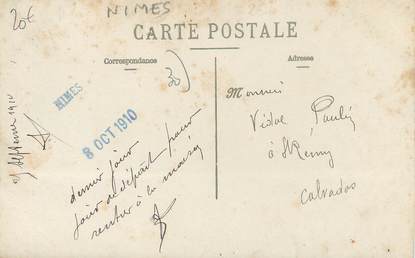 20€
NIMES
CARTE POSTALE
Correspondance
Adresse
30
NIMES
8 OCT 1910
Monsieur
Vidal Paulin
à St Rémy
calvados
dernier jour
jour de départ pour
rentrer à la maison
Septembre 191